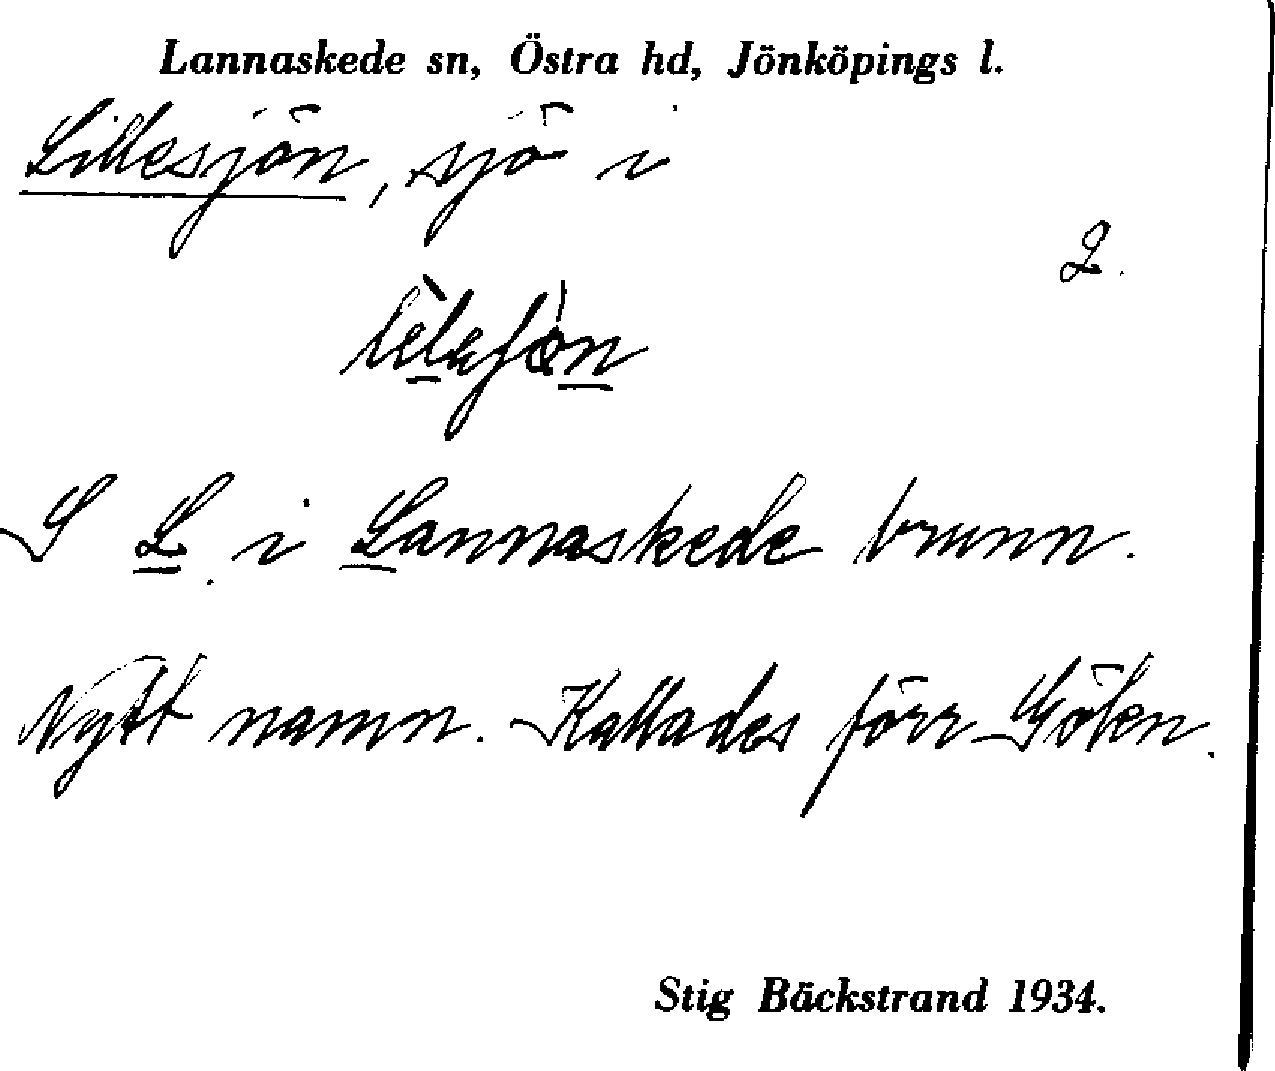 Lannaskede sn, Östra hd, Jönköpings l.
Lillesjön, sjö i
2.
S L. i Lannaskede brunn.
Nytt namn. Kallades förr Gölen.
Stig Bäckstrand 1934.